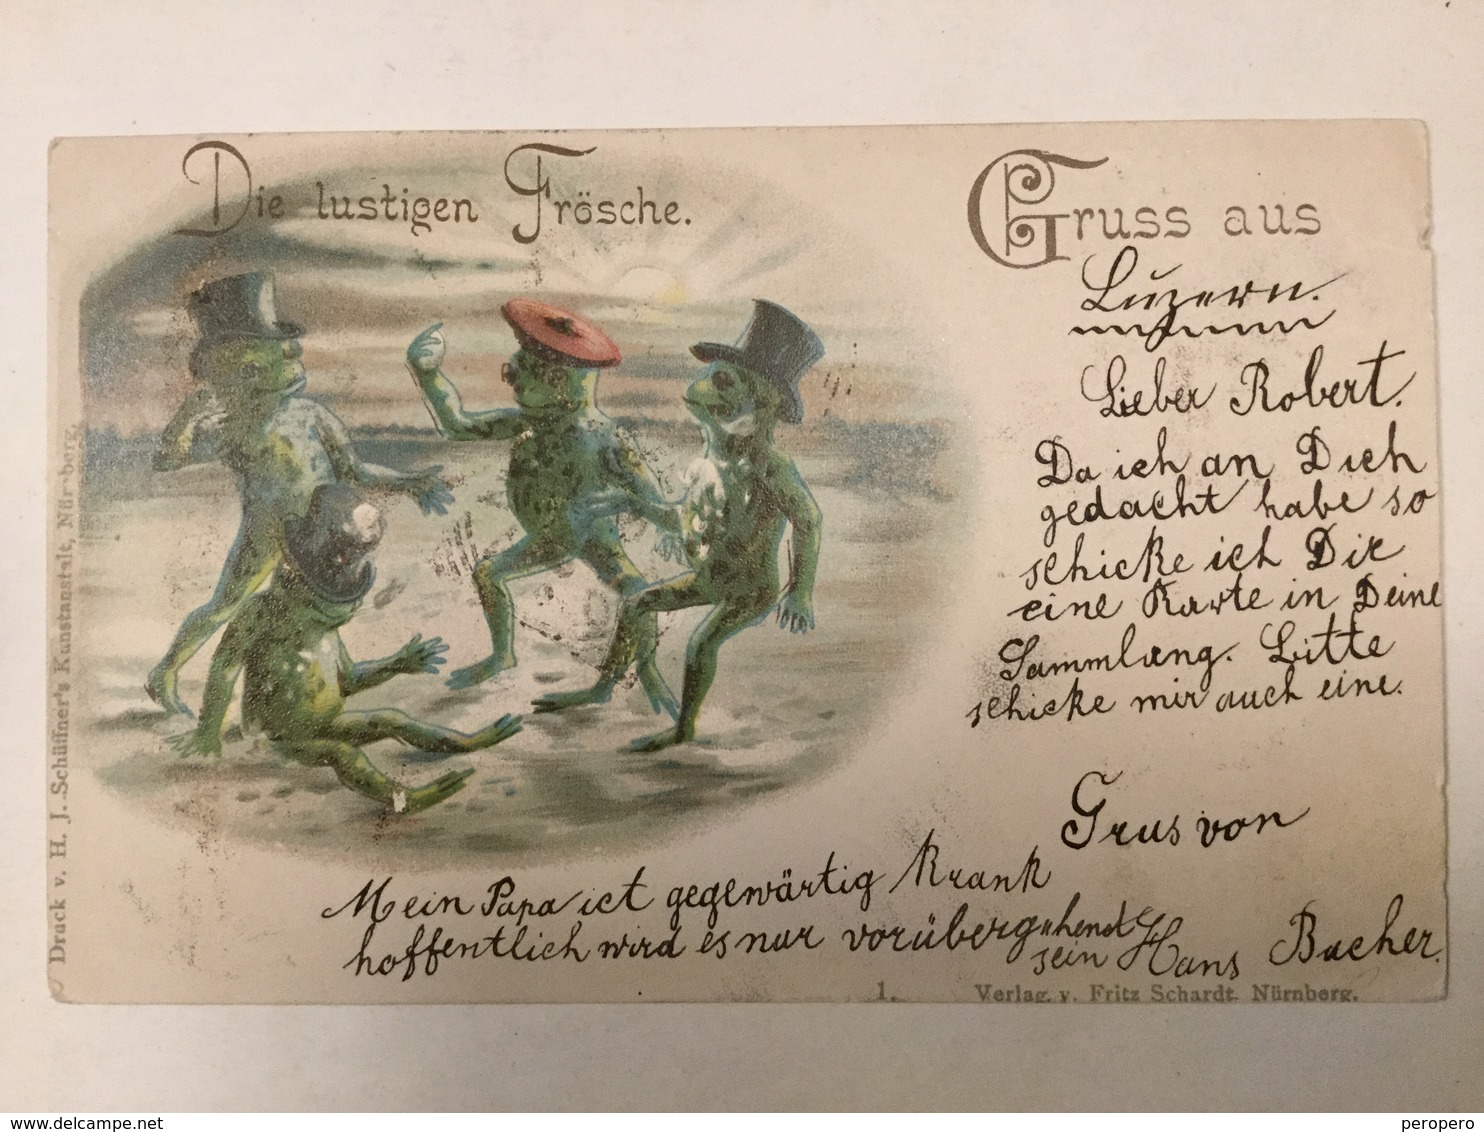 Die lustigen Frösche.
Gruss aus
Luzern.
Lieber Robert.
Da ich an Dich
gedacht habe so
schicke ich Dir
eine Karte in Deine
Sammlung. Bitte
schicke mir auch eine.
Grus von
Hans Bacher.
Mein Papa ist gegewärtig Krank
hoffentlich wird es nur vorübergehend
sein
Druck v. H. J. Schüffner's Kunstanstalt, Nürnberg.
1. Verlag. v. Fritz Schardt. Nürnberg.
www.delcampe.net
peropero